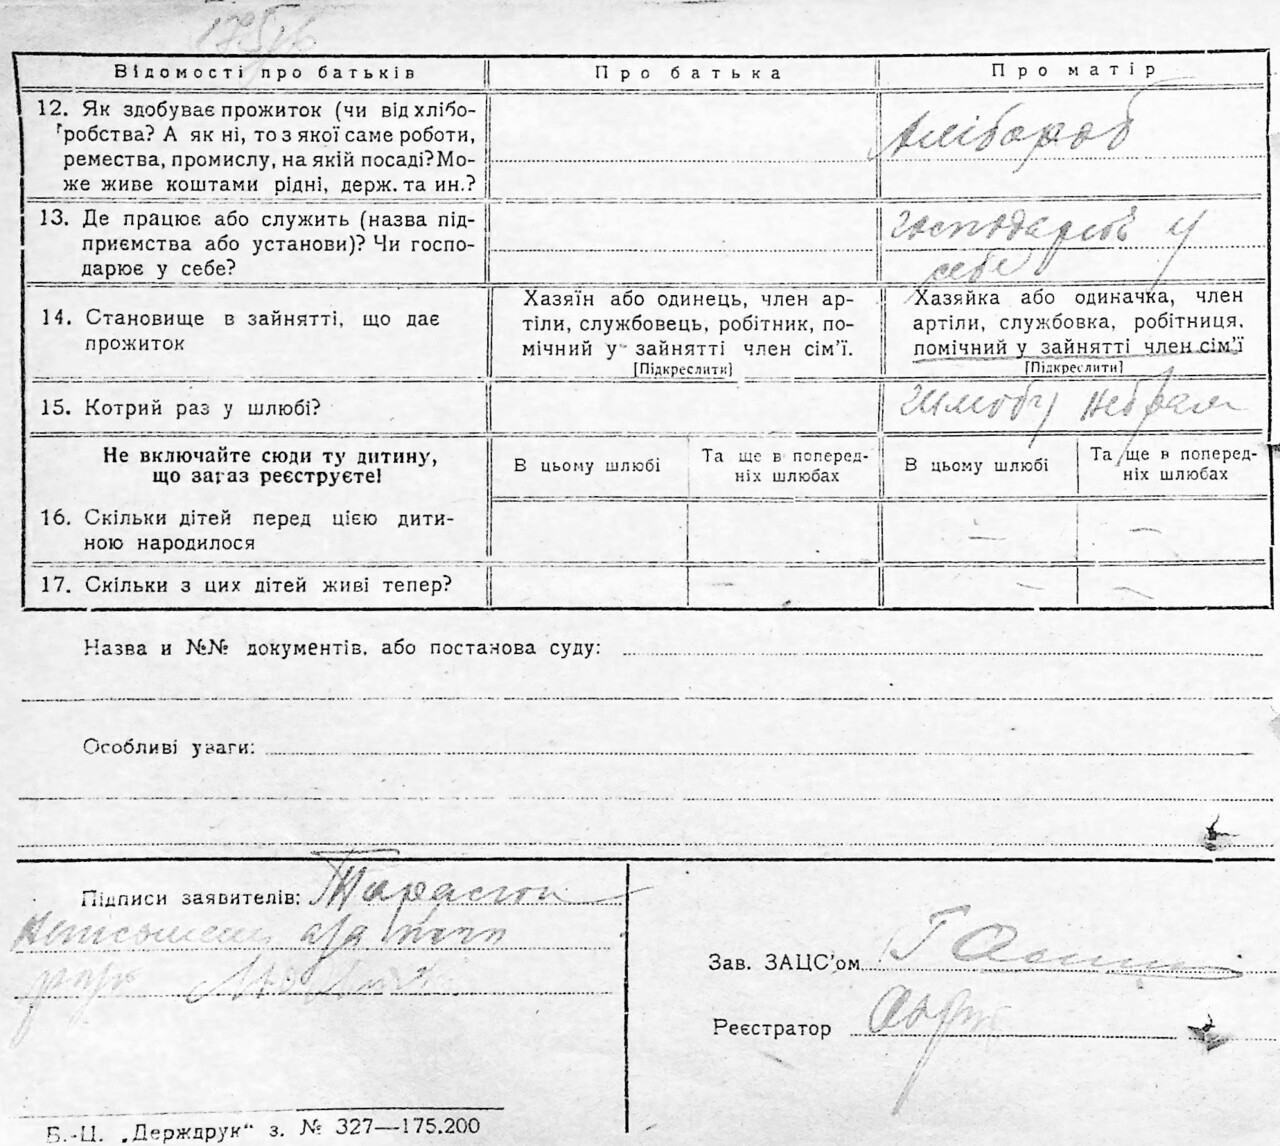 Відомості про батьків
Про батька
Про матір
12. Як здобуває прожиток (чи від хлібо-
робства? А як ні, то з якої саме роботи,
ремества, промислу, на якій посаді? Мо-
же живе коштами рідні, держ. та ин.?
хлібороб
13. Де працює або служить (назва під-
приємства або установи)? Чи госпо-
дарює у себе?
господарює у
себе
14. Становище в зайнятті, що дає
прожиток
Хазяїн або одинець, член ар-
тіли, службовець, робітник, по-
мічний у зайнятті член сім'ї.
[Підкреслити]
Хазяйка або одиначка, член
артіли, службовка, робітниця,
помічний у зайнятті член сім'ї
[Підкреслити]
15. Котрий раз у шлюбі?
шлюбу не брала
Не включайте сюди ту дитину,
що зараз реєструєте!
В цьому шлюбі
Та ще в поперед-
ніх шлюбах
В цьому шлюбі
Та ще в поперед-
ніх шлюбах
16. Скільки дітей перед цією дити-
ною народилося
— —
17. Скільки з цих дітей живі тепер?
— — —
Назва и №№ документів, або постанова суду:
Особливі уваги:
Підписи заявителів: Тарасюк
неписьмен
Зав. ЗАЦС'ом
Реєстратор
Б.-Ц. „Держдрук" з. № 327—175.200